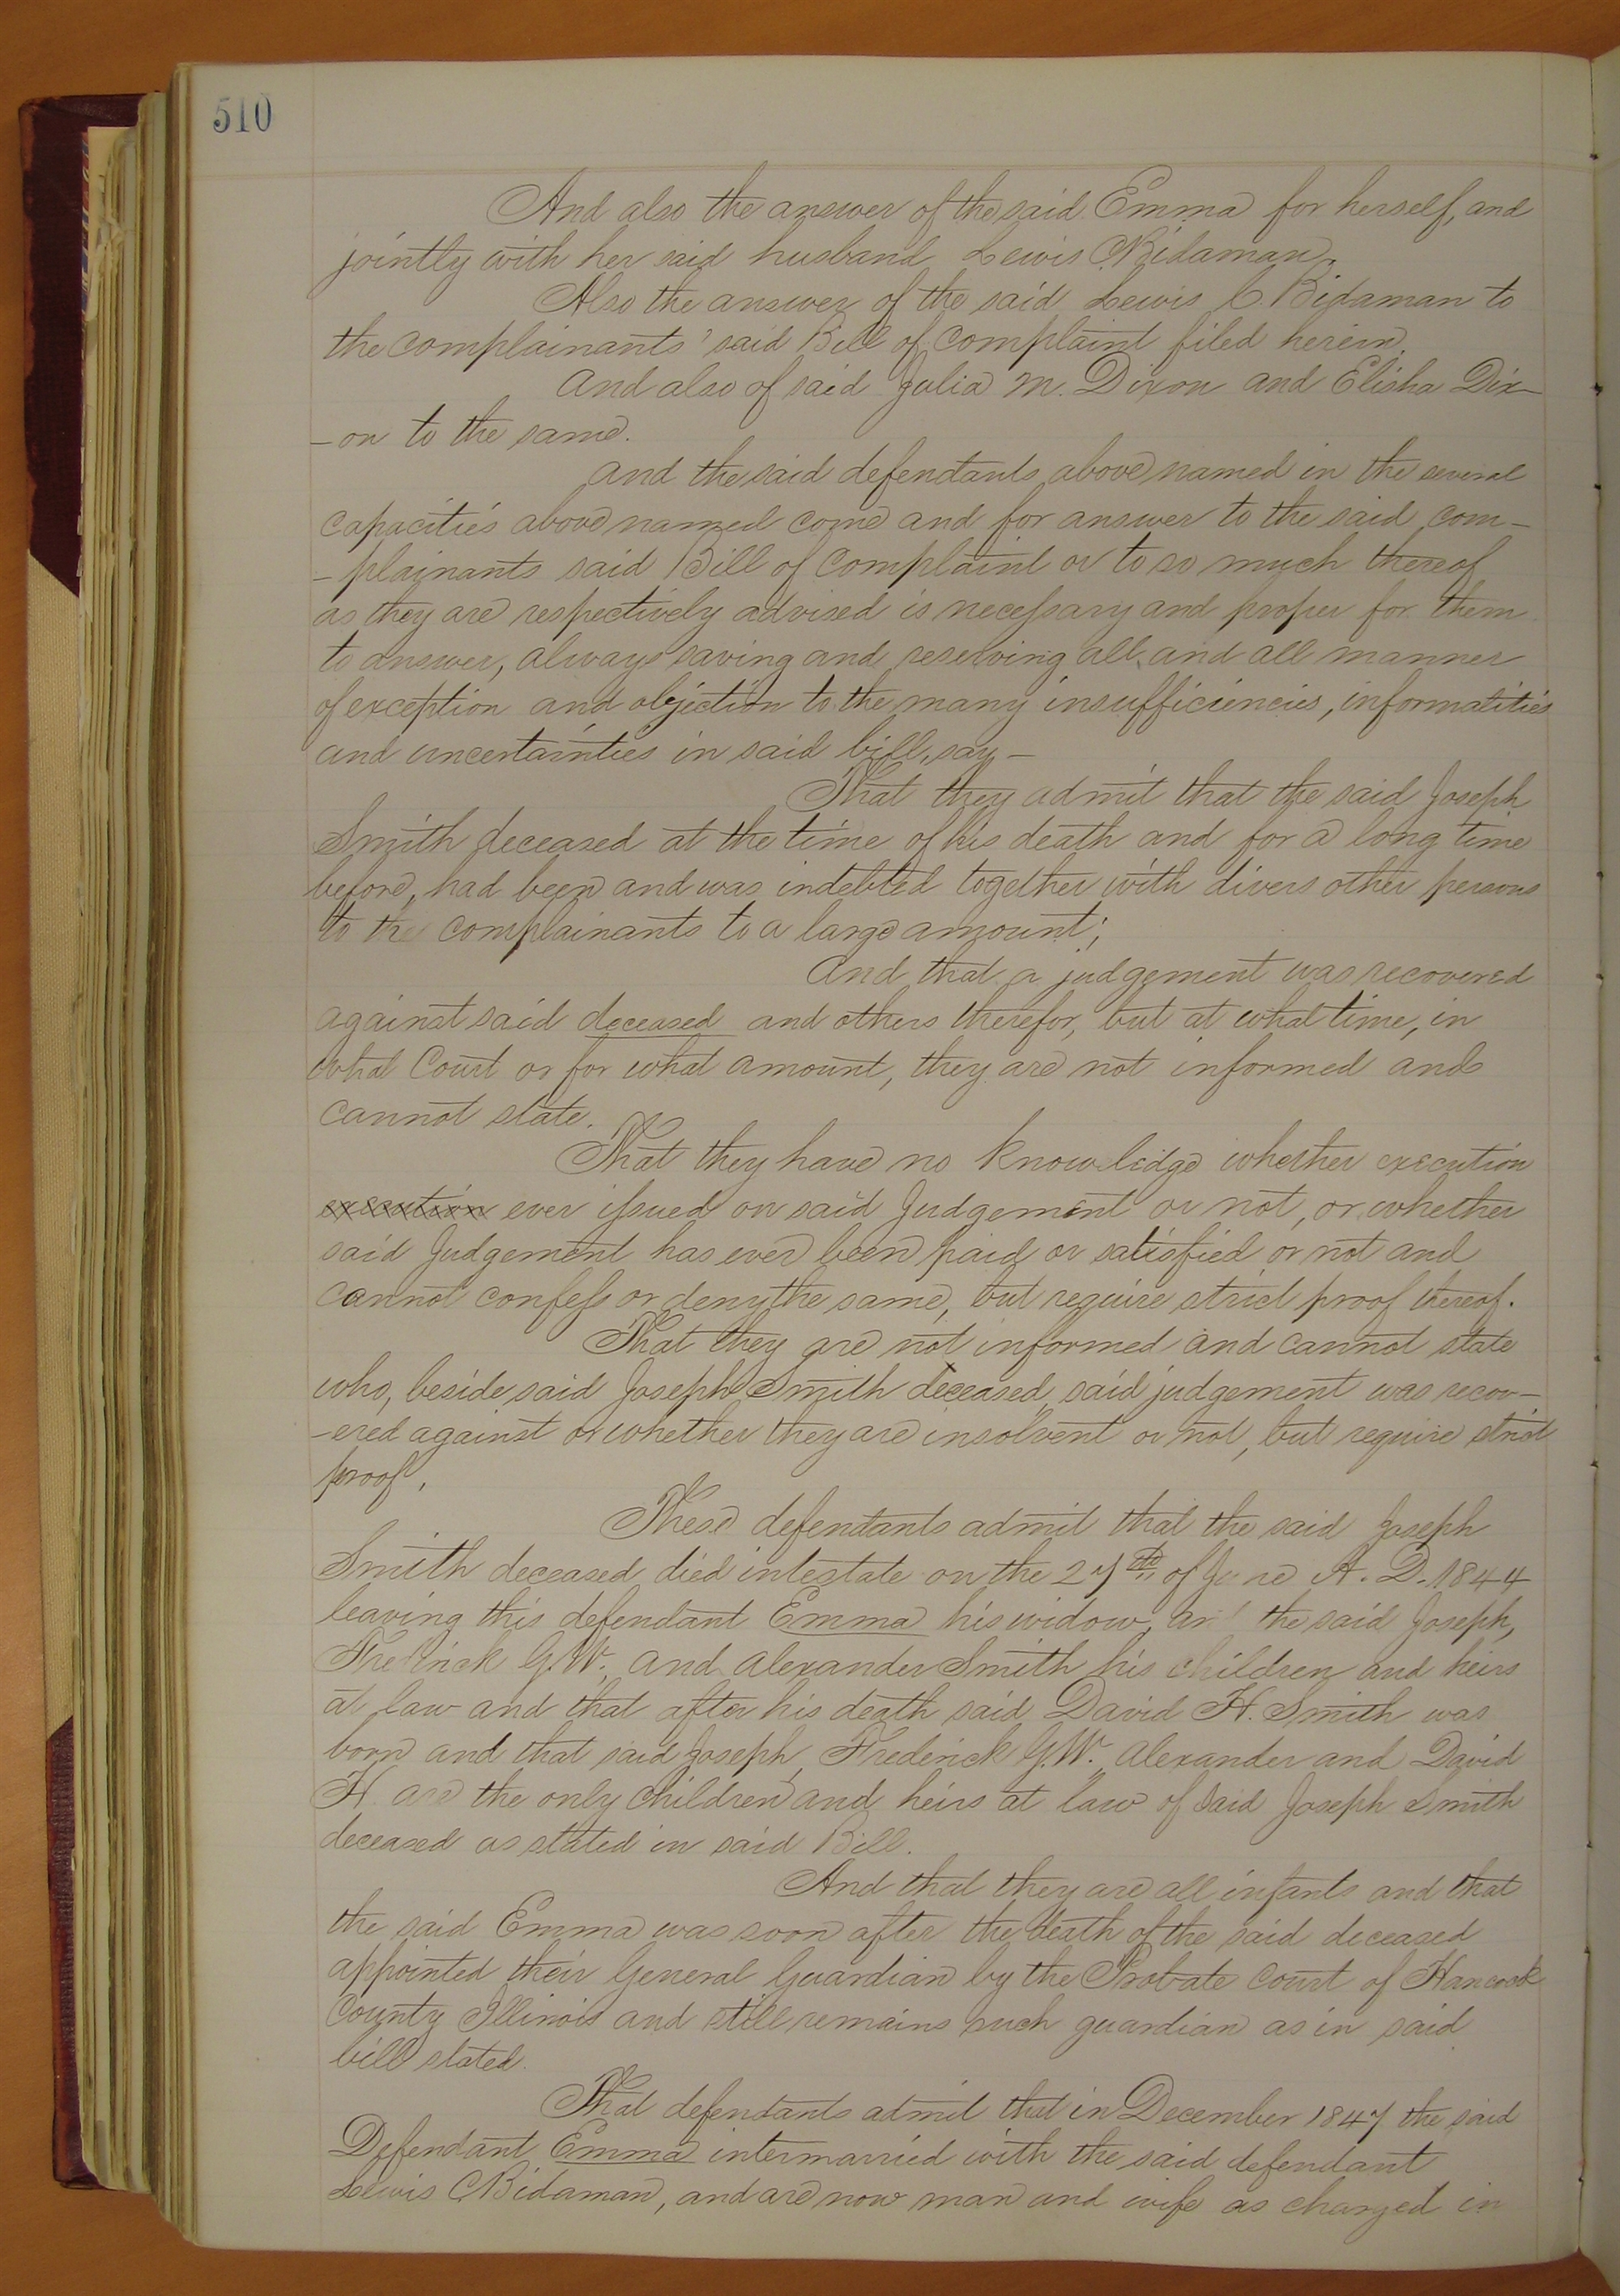 510
And also the answer of the said Emma for herself, and
jointly with her said husband Lewis C. Bidaman.
Also the answer of the said Lewis C. Bidaman to
the complainants' said Bill of Complaint filed herein.
And also of said Julia M. Dixon and Elisha Dix-
-on to the same.
And the said defendants above named in the several
capacities above named come and for answer to the said com-
-plainants said Bill of Complaint or to so much thereof
as they are respectively advised is necessary and proper for them
to answer, always saving and reserving all and all manner
of exception and objection to the many insufficiencies, informalities
and uncertainties in said bill, say -
That they admit that the said Joseph
Smith deceased at the time of his death and for a long time
before, had been and was indebted together with divers other persons
to the complainants to a large amount;
And that a judgement was recovered
against said deceased and others therefor, but at what time, in
what Court or for what amount, they are not informed and
cannot state.
That they have no knowledge whether execution
execution ever issued on said Judgement or not, or whether
said Judgement has ever been paid or satisfied or not and
cannot confess or deny the same, but require strict proof thereof.
That they are not informed and cannot state
who, beside said Joseph Smith deceased, said judgement was recov-
-ered against or whether they are insolvent or not, but require strict
proof.
These defendants admit that the said Joseph
Smith deceased died intestate on the 27th of June A. D. 1844
leaving this defendant Emma his widow, and the said Joseph,
Frederick G. W. and Alexander Smith his children and heirs
at law and that after his death said David H. Smith was
born and that said Joseph, Frederick G. W. Alexander and David
H. are the only children and heirs at law of said Joseph Smith
deceased as stated in said Bill.
And that they are all infants and that
the said Emma was soon after the death of the said deceased
appointed their General Guardian by the Probate Court of Hancock
County Illinois and still remains such guardian as in said
bill stated.
That defendants admit that in December 1847 the said
Defendant Emma intermarried with the said defendant
Lewis C. Bidaman, and are now man and wife as charged in